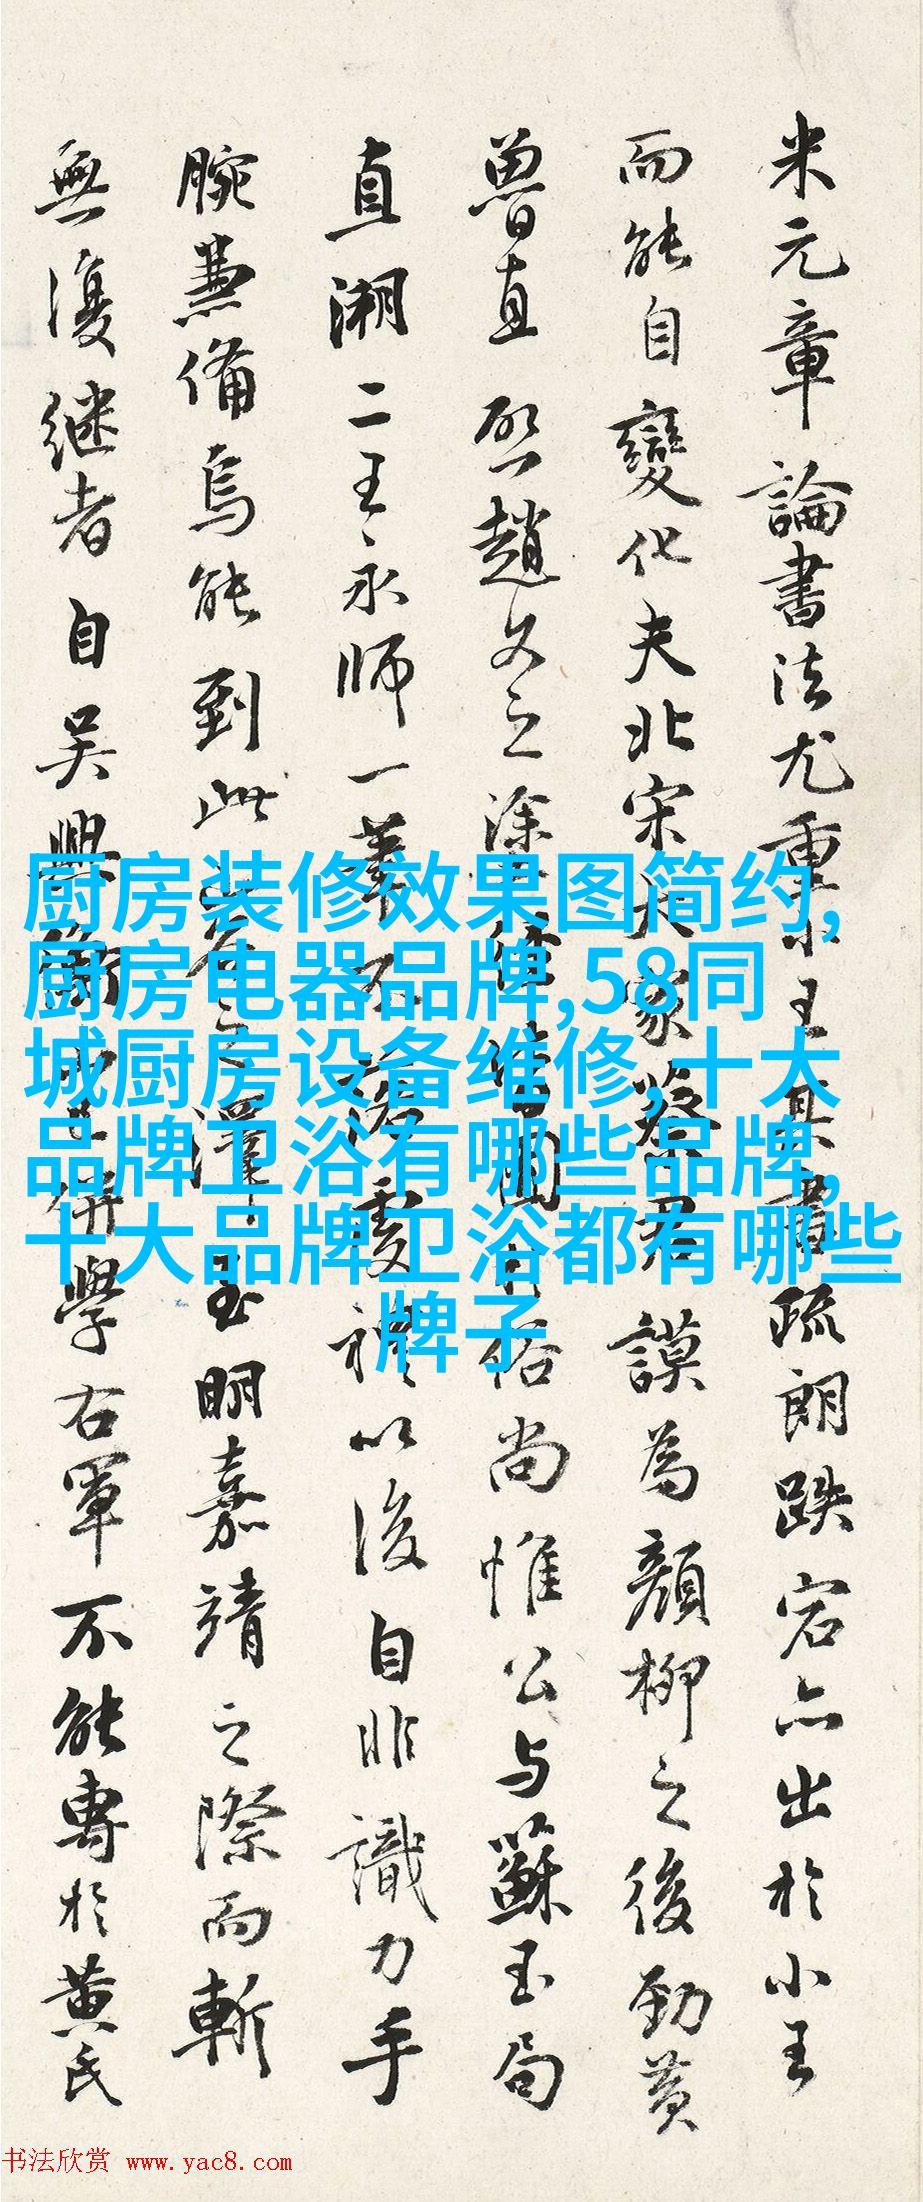 米元章論書法尤重小王其書疏朗跌宕亦出於小王
而能自變化夫北宋大家蔡君謨為顏柳之後勁黄
魯直啟趙文之塗俗尚惟公与蘇玉局
直溯二王永師一不禮以後自非識力手
腕兼備烏能到此之澤至明嘉靖之際而斬
無復继者自吴興併學右軍不能專於黄氏
厨房装修效果图简约,
厨房电器品牌,58同
城厨房设备维修,十大
品牌卫浴有哪些品牌,
十大品牌卫浴都有哪些
牌子
书法欣赏 www.yac8.com